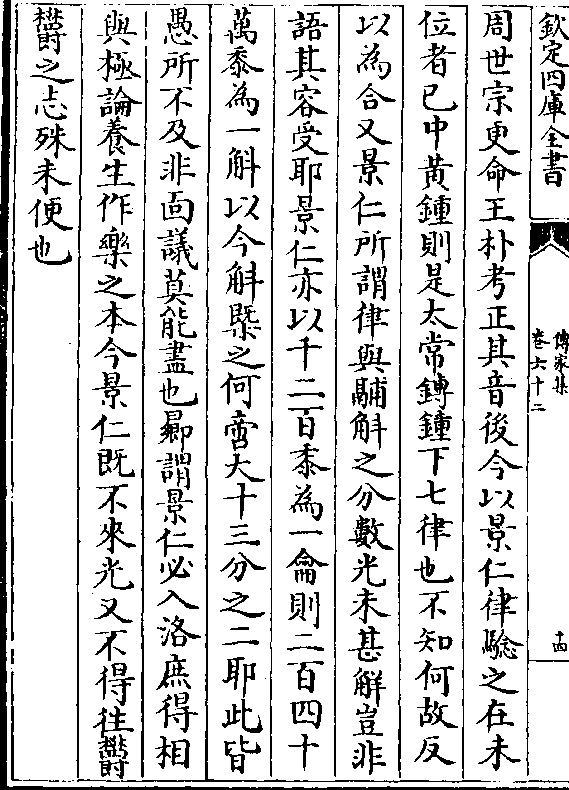 欽定四庫全書
傳家集
卷六十二
十四
周世宗更命王朴考正其音後今以景仁律騐之在未
位者已中黃鍾則是太常鏄鍾下七律也不知何故反
以為合又景仁所謂律與鬴斛之分數光未甚解豈非
語其容受耶景仁亦以千二百黍為一龠則二百四十
萬黍為一斛以今斛槩之何啻大十三分之二耶此皆
愚所不及非面議莫能盡也曏謂景仁必入洛庶得相
與極論養生作樂之本今景仁既不來光又不得往欝
欝之志殊未便也